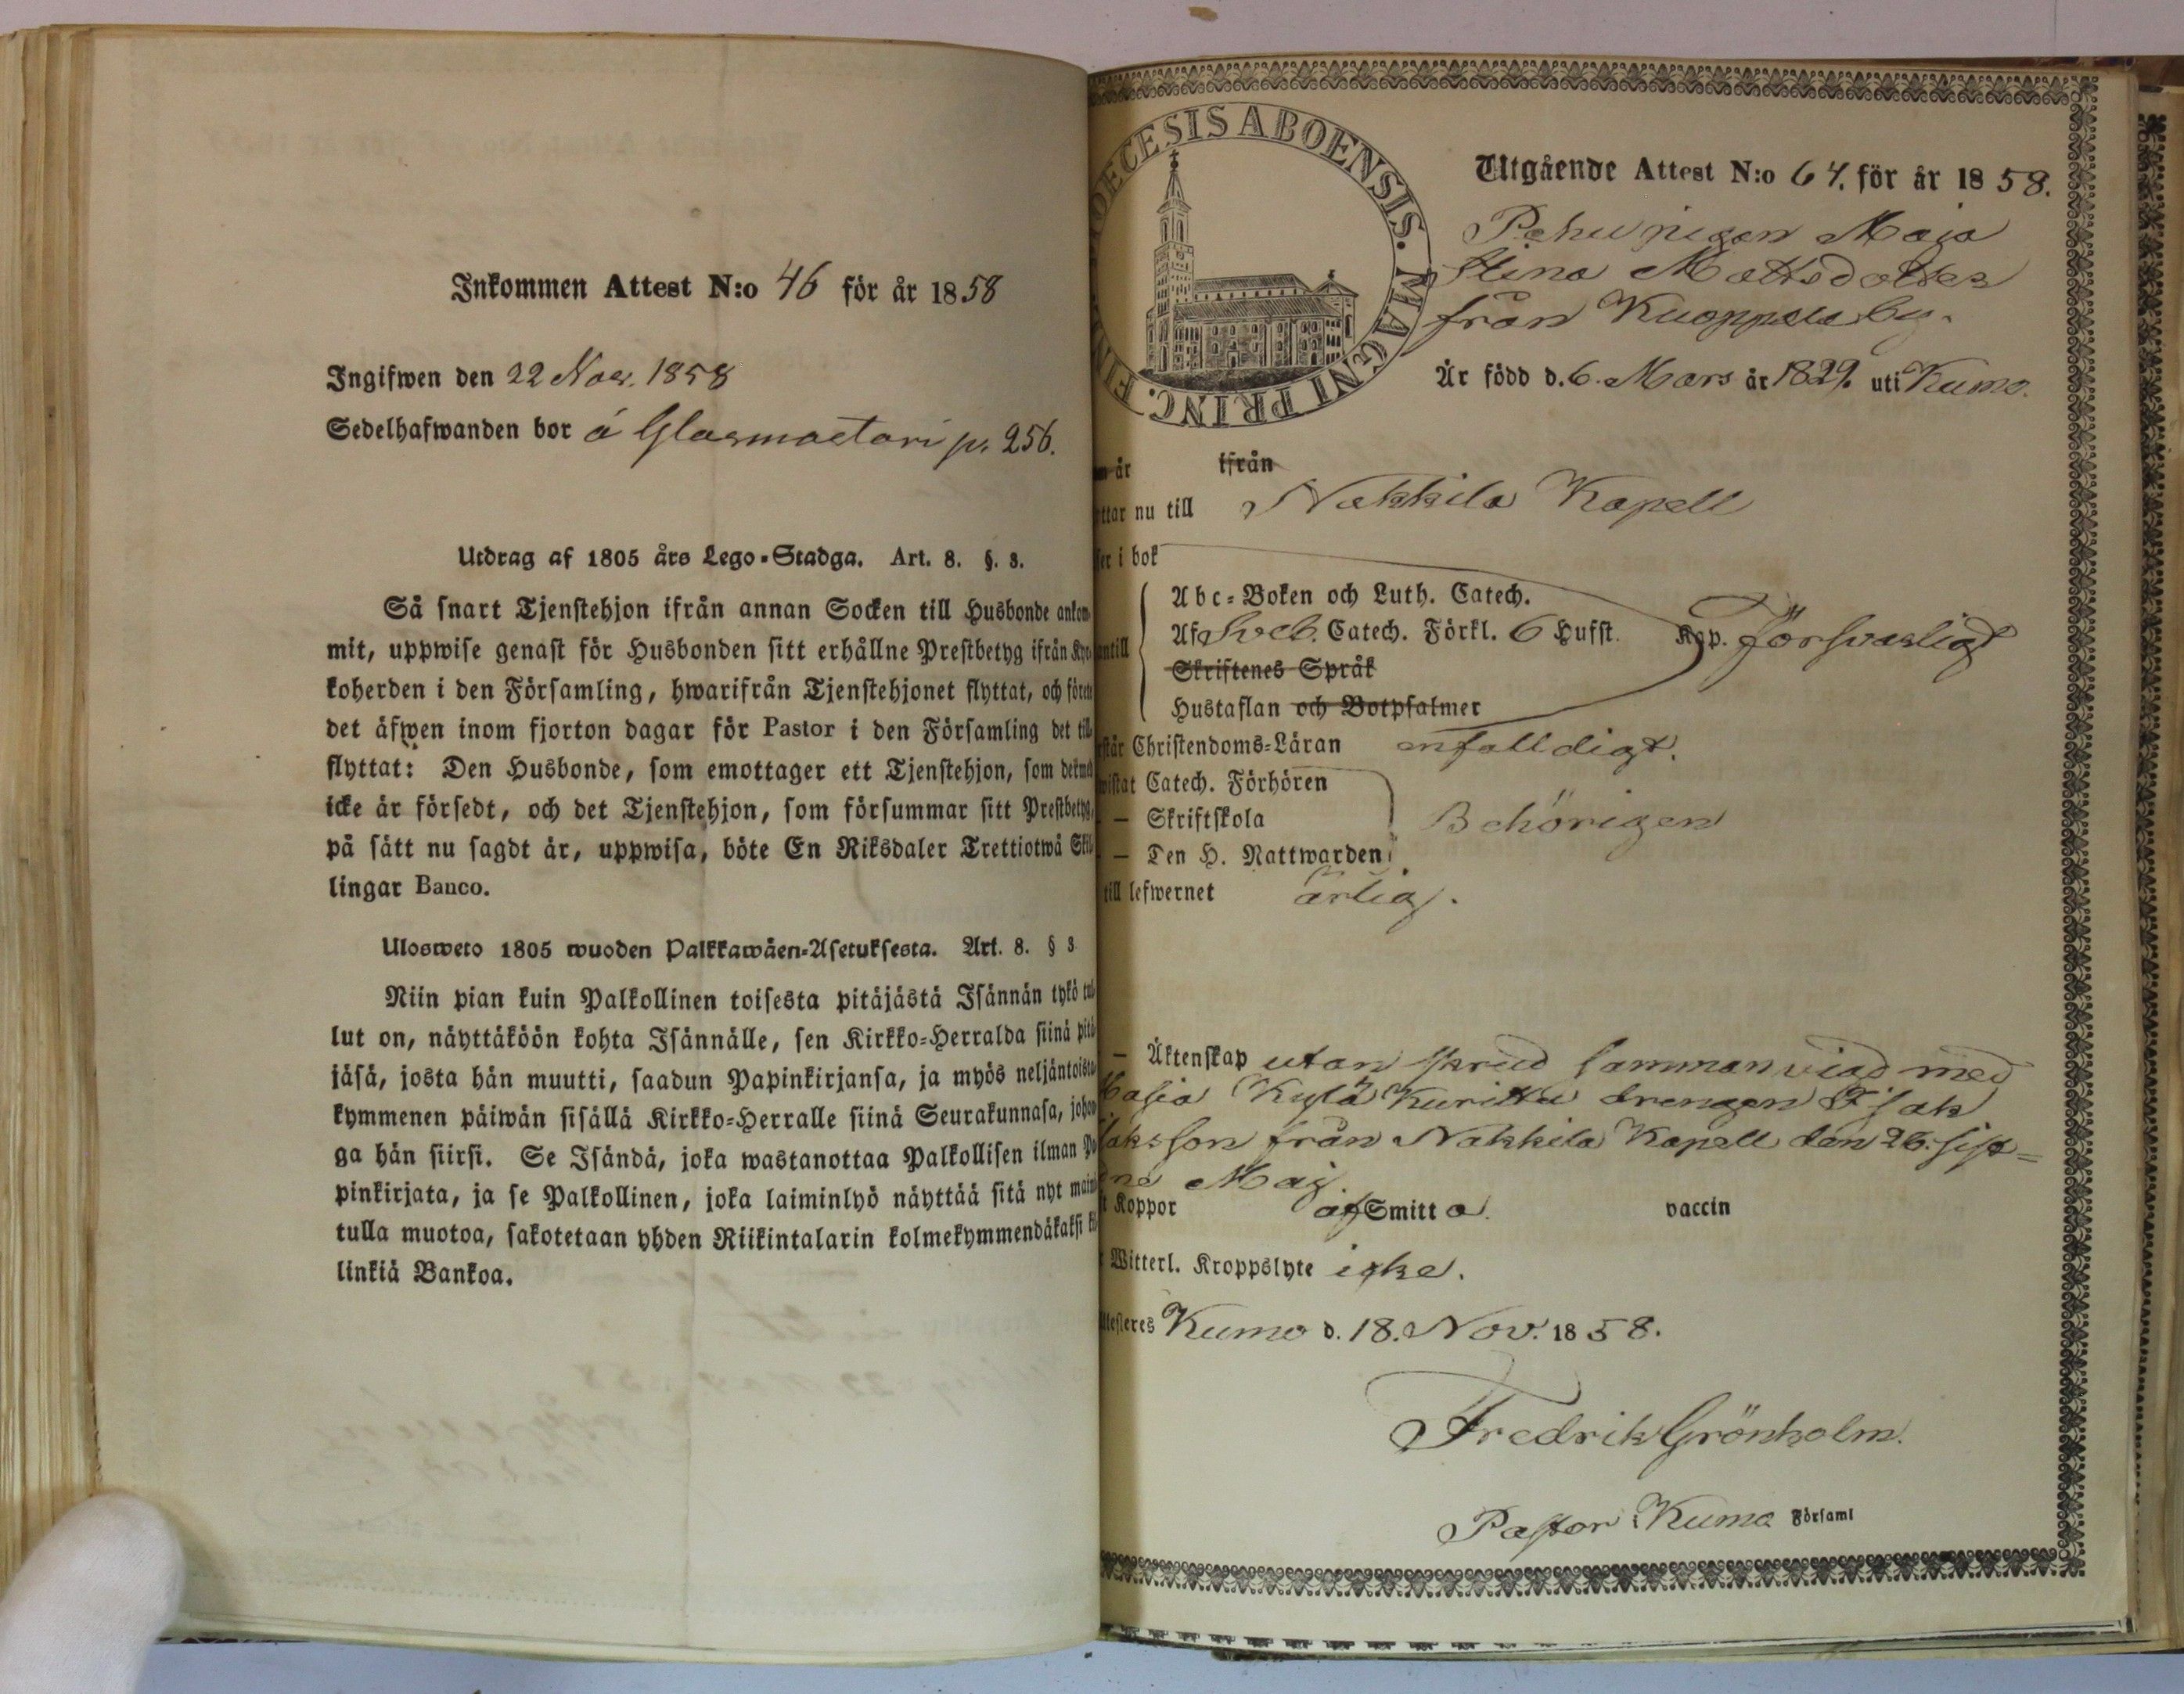 Inkommen Attest N:o 46 för år 1858
Ingifwen den 22 Nov. 1858
Sedelhafwanden bor á Glasmastari p. 256.
Utdrag af 1805 års Lego-Stadga. Art. 8. §. 3.
Så snart Tjenstehjon ifrån annan Socken till Husbonde ankom-
mit, uppwise genast för Husbonden sitt erhållne Prestbetyg ifrån Kyr-
koherden i den Församling, hwarifrån Tjenstehjonet flyttat, och förete
det äfwen inom fjorton dagar för Pastor i den Församling det till-
flyttat: Den Husbonde, som emottager ett Tjenstehjon, som dermed
icke är försedt, och det Tjenstehjon, som försummar sitt Prestbetyg,
på sätt nu sagdt är, uppwisa, böte En Riksdaler Trettiotwå Skil-
lingar Banco.
Ulosweto 1805 wuoden Palkkawäen-Asetuksesta. Art. 8. § 3.
Niin pian kuin Palkollinen toisesta pitäjästä Isännän tykö tul-
lut on, näyttäköön kohta Isännälle, sen Kirkko-Herralda siinä pitä-
jäsä, josta hän muutti, saadun Papinkirjansa, ja myös neljäntoista-
kymmenen päiwän sisällä Kirkko-Herralle siinä Seurakunnasa, johon-
ga hän siirsi. Se Isändä, joka wastanottaa Palkollisen ilman Pa-
pinkirjata, ja se Palkollinen, joka laiminlyö näyttää sitä nyt maini-
tulla muotoa, sakotetaan yhden Riikintalarin kolmekymmendäkaksi kil-
linkiä Bankoa.
DIOECESIS ABOENSIS. MAGNI PRINC. FIN
Utgående Attest N:o 64. för år 1858.
Pehu pigan Maja
Stina Mattsdotter
från Kuoppala by.
Är född d. 6. Mars år 1829. uti Kumo.
är ifrån
ttar nu till Nakkila Kapell
ser i bok
Abc-Boken och Luth. Catech.
Af Sveb. Catech. Förkl. 6 Hufst. Kap. försvarligt
antill
Skriftenes Språk
Hustaflan och Botpsalmer
står Christendoms-Läran enfalldigt.
wistat Catech. Förhören
— Skriftskola Behörigen
— Den H. Nattwarden
till lefwernet ärlig.
— Äktenskap utan skrud sammanvigd med
Kylä Kuritta drengen Isak
saksson från Nakkila Kapell den 26. sist=
ne Maj
t Koppor af Smitta. vaccin
Witterl. Kroppslyte icke.
Attesteres Kumo d. 18. Nov. 1858.
Fredrik Grönholm.
Pastor i Kumo Församl